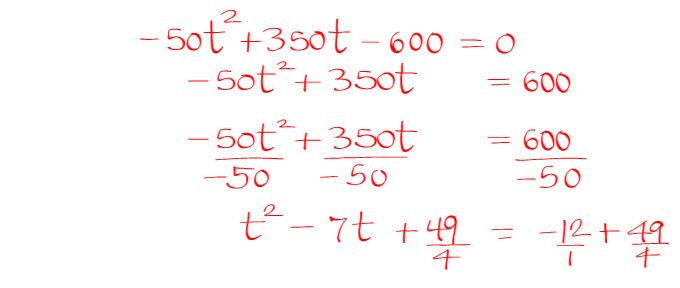 -50t²+350t-600=0
-50t²+350t =600
-50t²/-50+350t/-50 =600/-50
t²-7t+49/4=-12/1+49/4